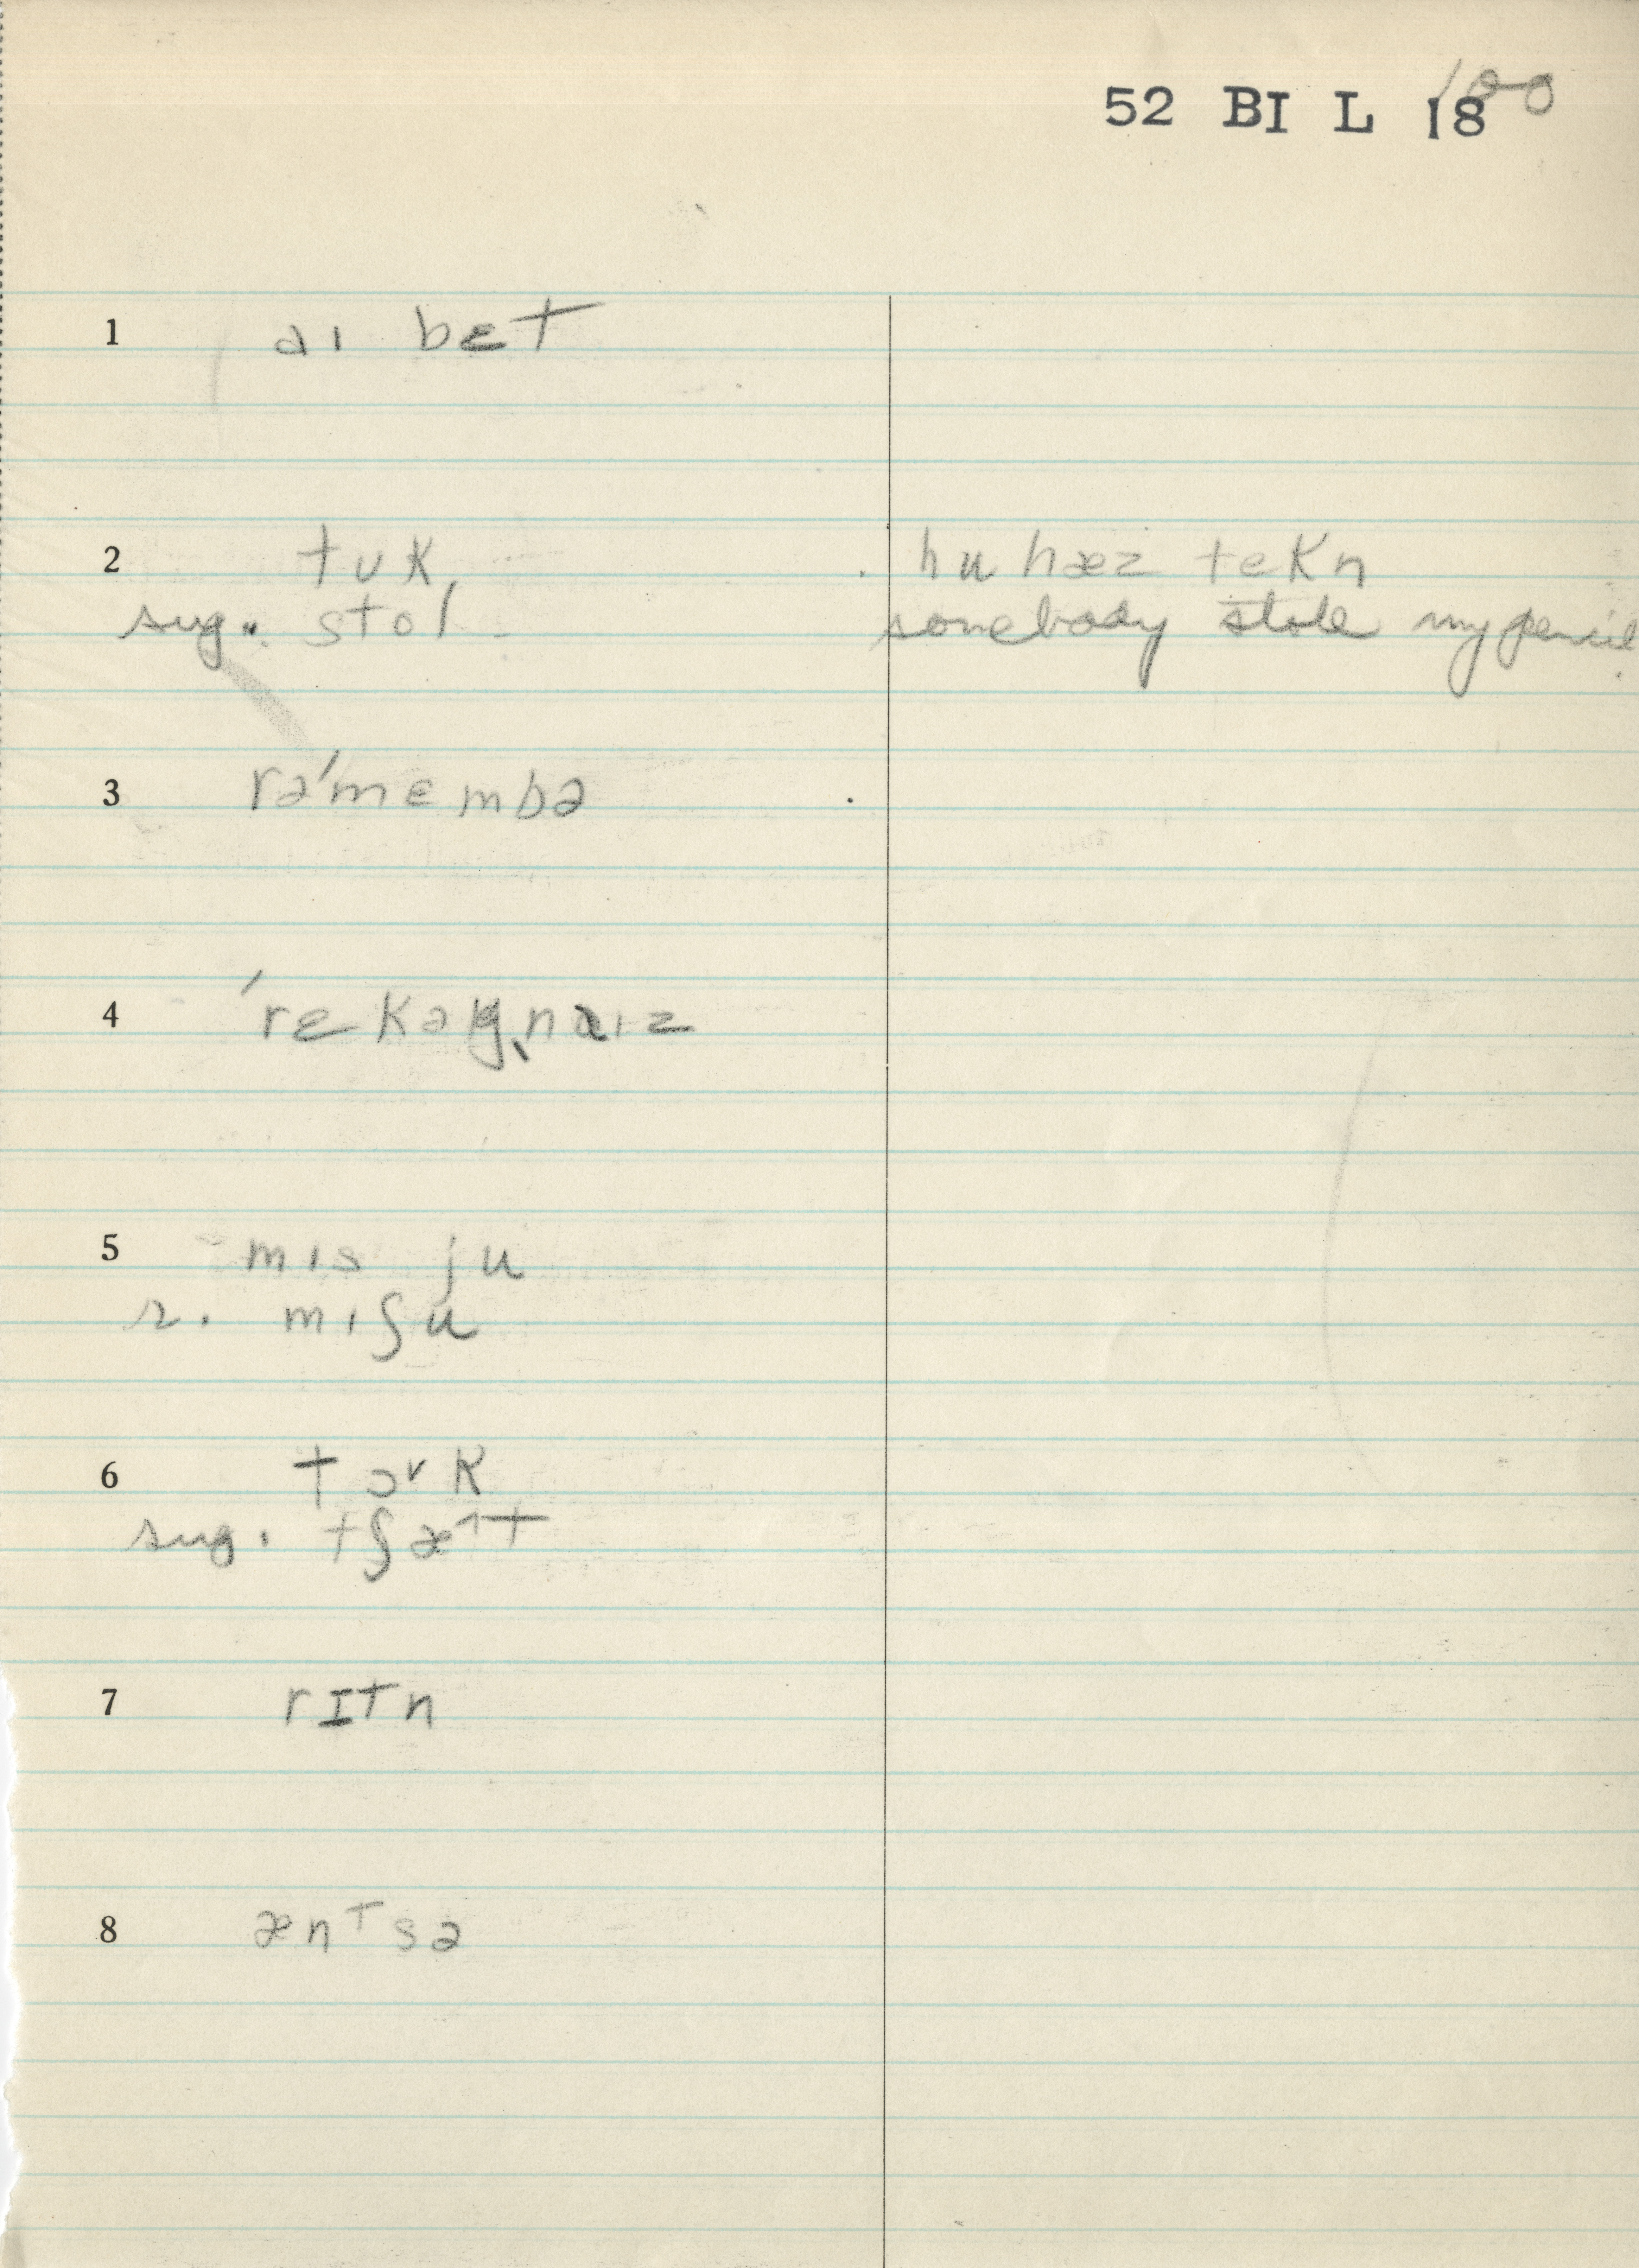 52 BI L 18 100
1 aɪ bɛt
2 tʊk hu hæz tekn
sug. stol somebody stole my pencil
3 rəˈmɛmbə
4 ˈrɛkəgnaɪz
5 mɪs ju
r. mɪʃu
6 tɔ˅k
sug. tʃæ˄t
7 rɪtn
8 æntsə